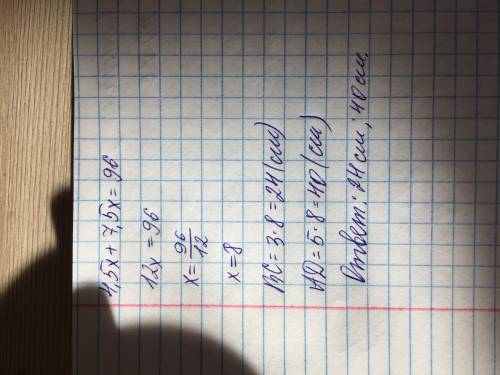 4,5x + 7,5x = 96
12x = 96
x = 96/12
x = 8
BC = 3·8 = 24 (см)
AD = 5·8 = 40 (см)
Ответ: 24 см; 40 см.